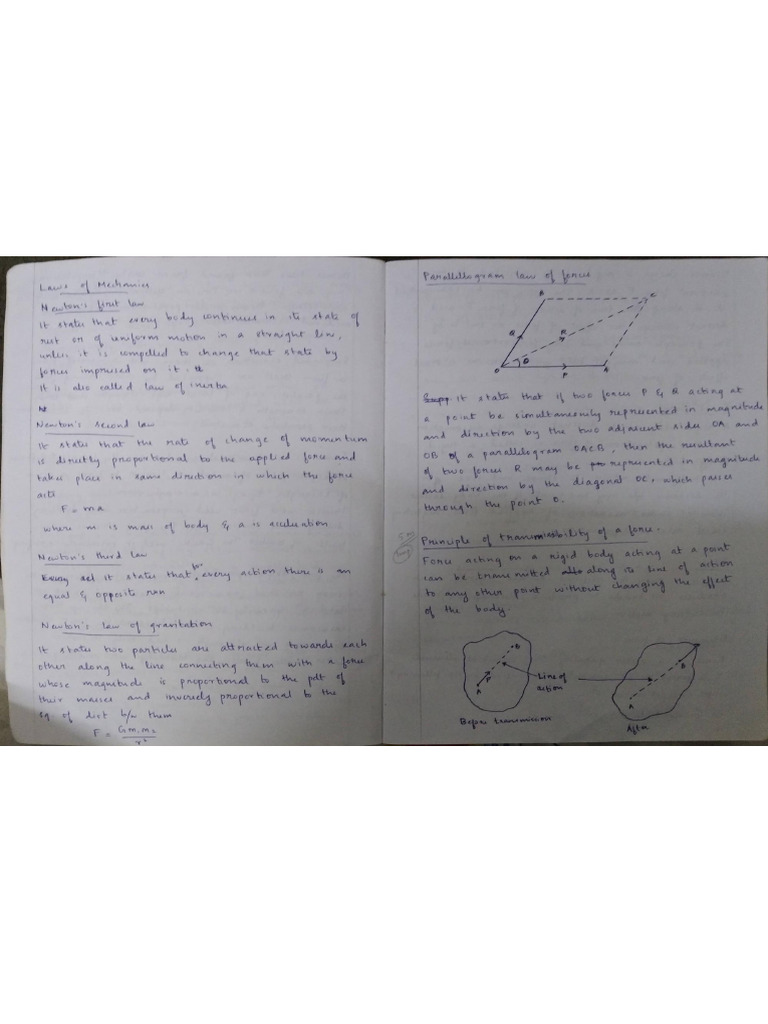 Laws of Mechanics
Newton's first law
It states that every body continues in its state of
rest or of uniform motion in a straight line,
unless it is compelled to change that state by
forces impressed on it.
It is also called law of inertia
Newton's second law
It states that the rate of change of momentum
is directly proportional to the applied force and
takes place in same direction in which the force
acts
F = ma
where m is mass of body & a is accleration
Newton's third law
It states that for every action there is an
equal & opposite rxn
Newton's law of gravitation
It states two particles are attracted towards each
other along the line connecting them with a force
whose magnitude is proportional to the pdt of
their masses and inversely proportional to the
sq. of dist b/w them
F = Gm1m2
r²
Parallellogram law of forces
B
C
Q
R
θ
O
P
A
It states that if two forces P & Q acting at
a point be simultaneously represented in magnitude
and direction by the two adjacent sides OA and
OB of a parallelogram OACB, then the resultant
of two forces R may be represented in magnitude
and direction by the diagonal OC, which passes
through the point O.
Principle of transmissibility of a force.
Force acting on a rigid body acting at a point
can be transmitted along its line of action
to any other point without changing the effect
of the body.
B
P
A
Line of
action
B
A
Before transmission
After